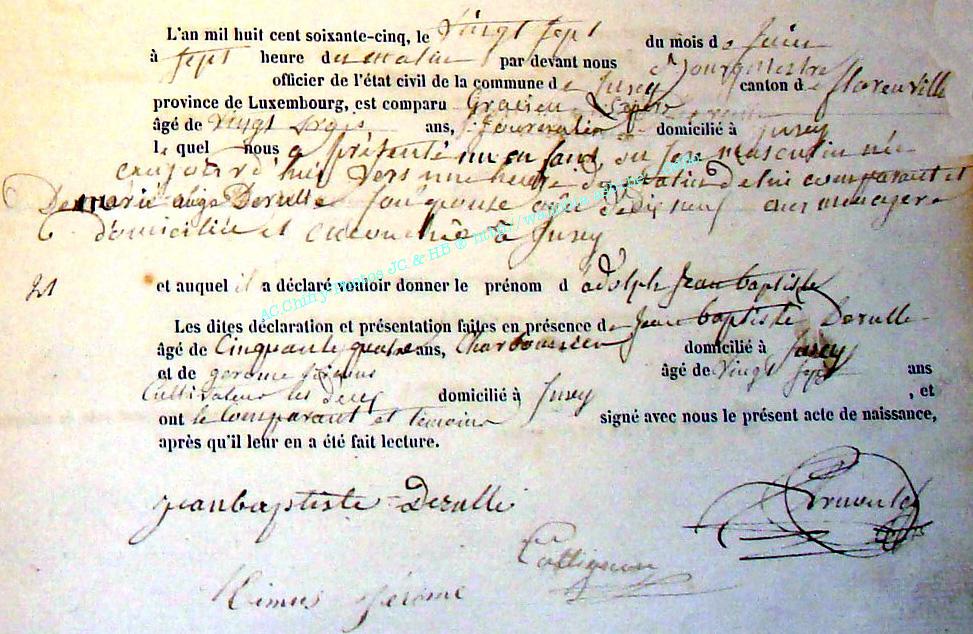 L'an mil huit cent soixante-cinq, le vingt sept du mois de juin
à sept heure du matin par devant nous Bourgmestre
officier de l'état civil de la commune de Jusey canton de florenville
province de Luxembourg, est comparu Gratien
âgé de vingt trois ans, Journalier domicilié à Jusey
lequel nous a présenté un enfant, du sexe masculin né
cejourd'hui vers une heure du matin de lui comparant et
De marie Derulle son épouse agée de dix neuf ans menagere
domiciliée et accouchée à Jusey
21 et auquel il a déclaré vouloir donner le prénom d'adolph Jean baptiste
Les dites déclaration et présentation faites en présence de Jean baptiste Derulle
âgé de Cinquante quatre ans, Charbonnier domicilié à Jusey
et de gerome âgé de vingt sept ans
Cultivateur les deux domicilié à Jusey , et
ont le Comparant et temoins signé avec nous le présent acte de naissance,
après qu'il leur en a été fait lecture.
jean baptiste = Derulle
Collignon
Jérome
AC Chiny photos JC & HB ©